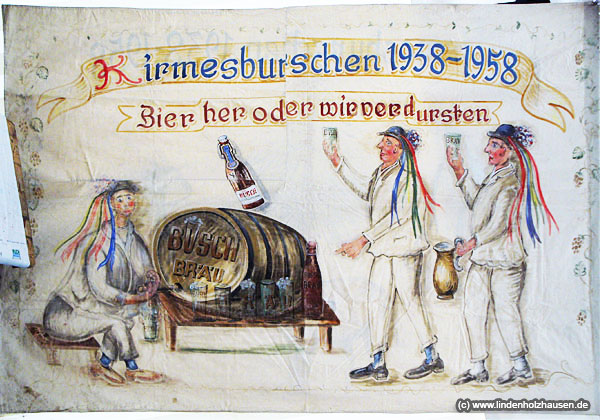 Kirmesburschen 1938-1958
Bier her oder wir verdursten
BUSCH
BRÄU
(c) www.lindenholzhausen.de